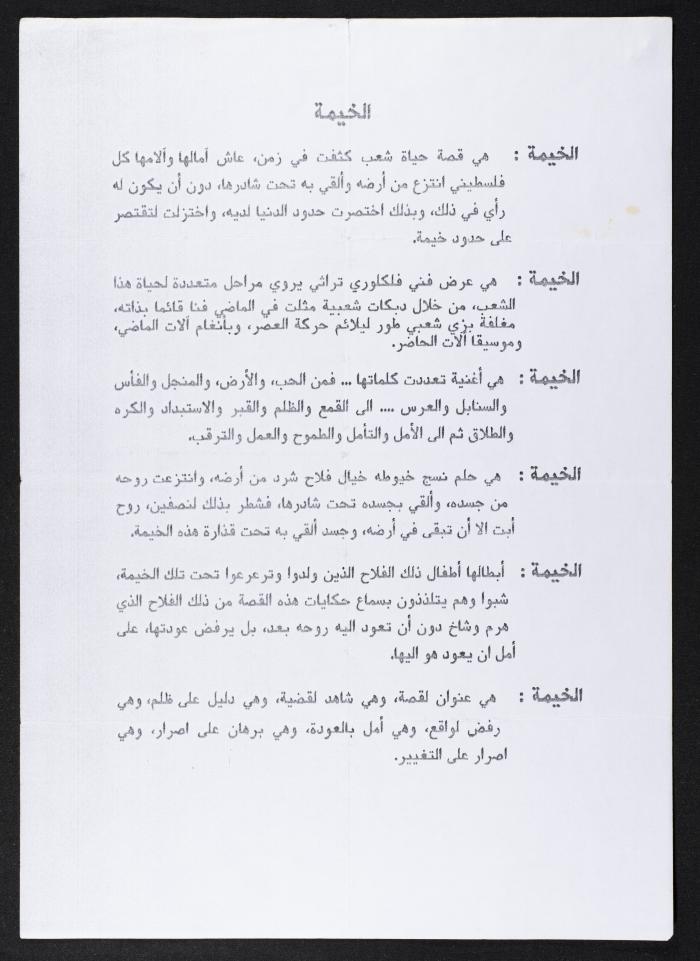 الخيمة
الخيمة : هي قصة حياة شعب كثفت في زمن، عاش آمالها وآلامها كل
فلسطيني انتزع من أرضه وألقي به تحت شادرها، دون أن يكون له
رأي في ذلك، وبذلك اختصرت حدود الدنيا لديه، واختزلت لتقتصر
على حدود خيمة.
الخيمة : هي عرض فني فلكلوري تراثي يروي مراحل متعددة لحياة هذا
الشعب، من خلال دبكات شعبية مثلت في الماضي فنا قائما بذاته،
مغلفة بزي شعبي طور ليلائم حركة العصر، وبأنغام آلات الماضي،
وموسيقا آلات الحاضر.
الخيمة : هي أغنية تعددت كلماتها ... فمن الحب، والأرض، والمنجل والفأس
والسنابل والعرس .... الى القمع والظلم والقبر والاستبداد والكره
والطلاق ثم الى الأمل والتأمل والطموح والعمل والترقب.
الخيمة : هي حلم نسج خيوطه خيال فلاح شرد من أرضه، وانتزعت روحه
من جسده، وألقي بجسده تحت شادرها، فشطر بذلك لنصفين، روح
أبت الا أن تبقى في أرضه، وجسد ألقي به تحت قذارة هذه الخيمة.
الخيمة : أبطالها أطفال ذلك الفلاح الذين ولدوا وترعرعوا تحت تلك الخيمة،
شبوا وهم يتلذذون بسماع حكايات هذه القصة من ذلك الفلاح الذي
هرم وشاخ دون أن تعود اليه روحه بعد، بل يرفض عودتها، على
أمل ان يعود هو اليها.
الخيمة : هي عنوان لقصة، وهي شاهد لقضية، وهي دليل على ظلم، وهي
رفض لواقع، وهي أمل بالعودة، وهي برهان على اصرار، وهي
اصرار على التغيير.